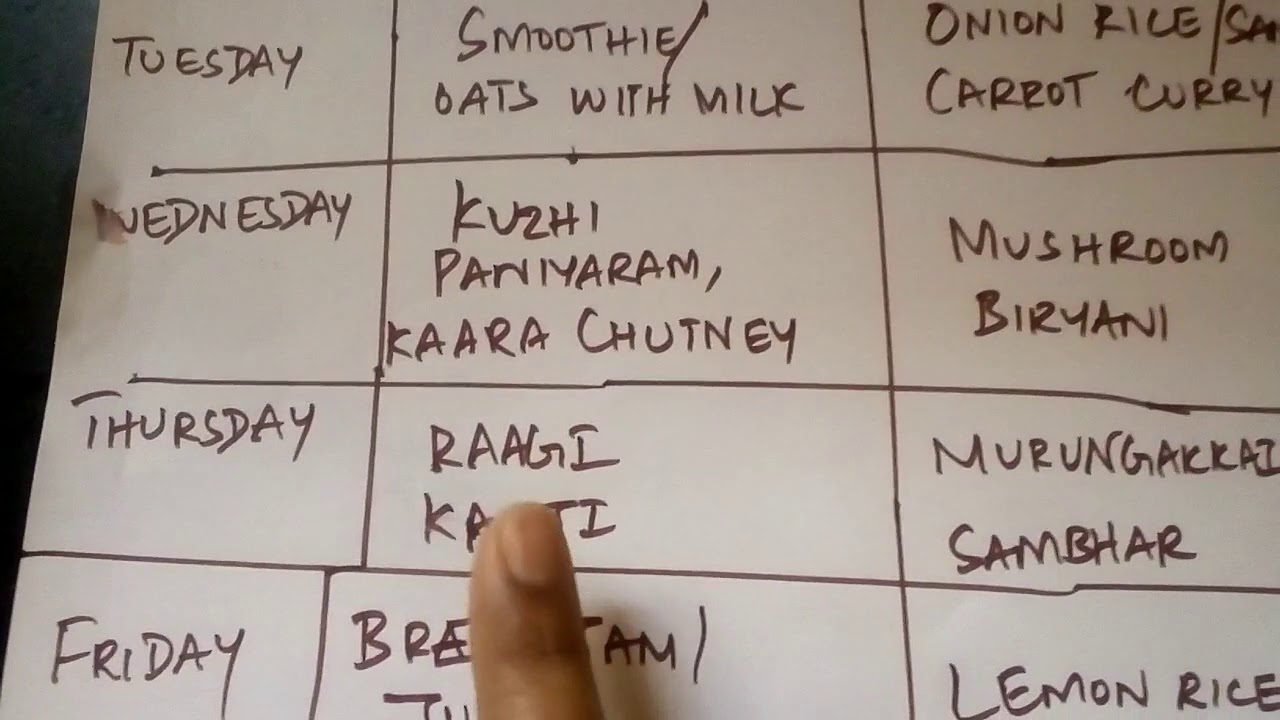 TUESDAY
SMOOTHIE/
OATS WITH MILK
ONION RICE/
CARROT CURRY
WEDNESDAY
KUZHI
PANIYARAM,
KAARA CHUTNEY
MUSHROOM
BIRYANI
THURSDAY
RAAGI
MURUNGAKKAI
SAMBHAR
FRIDAY
LEMON RICE